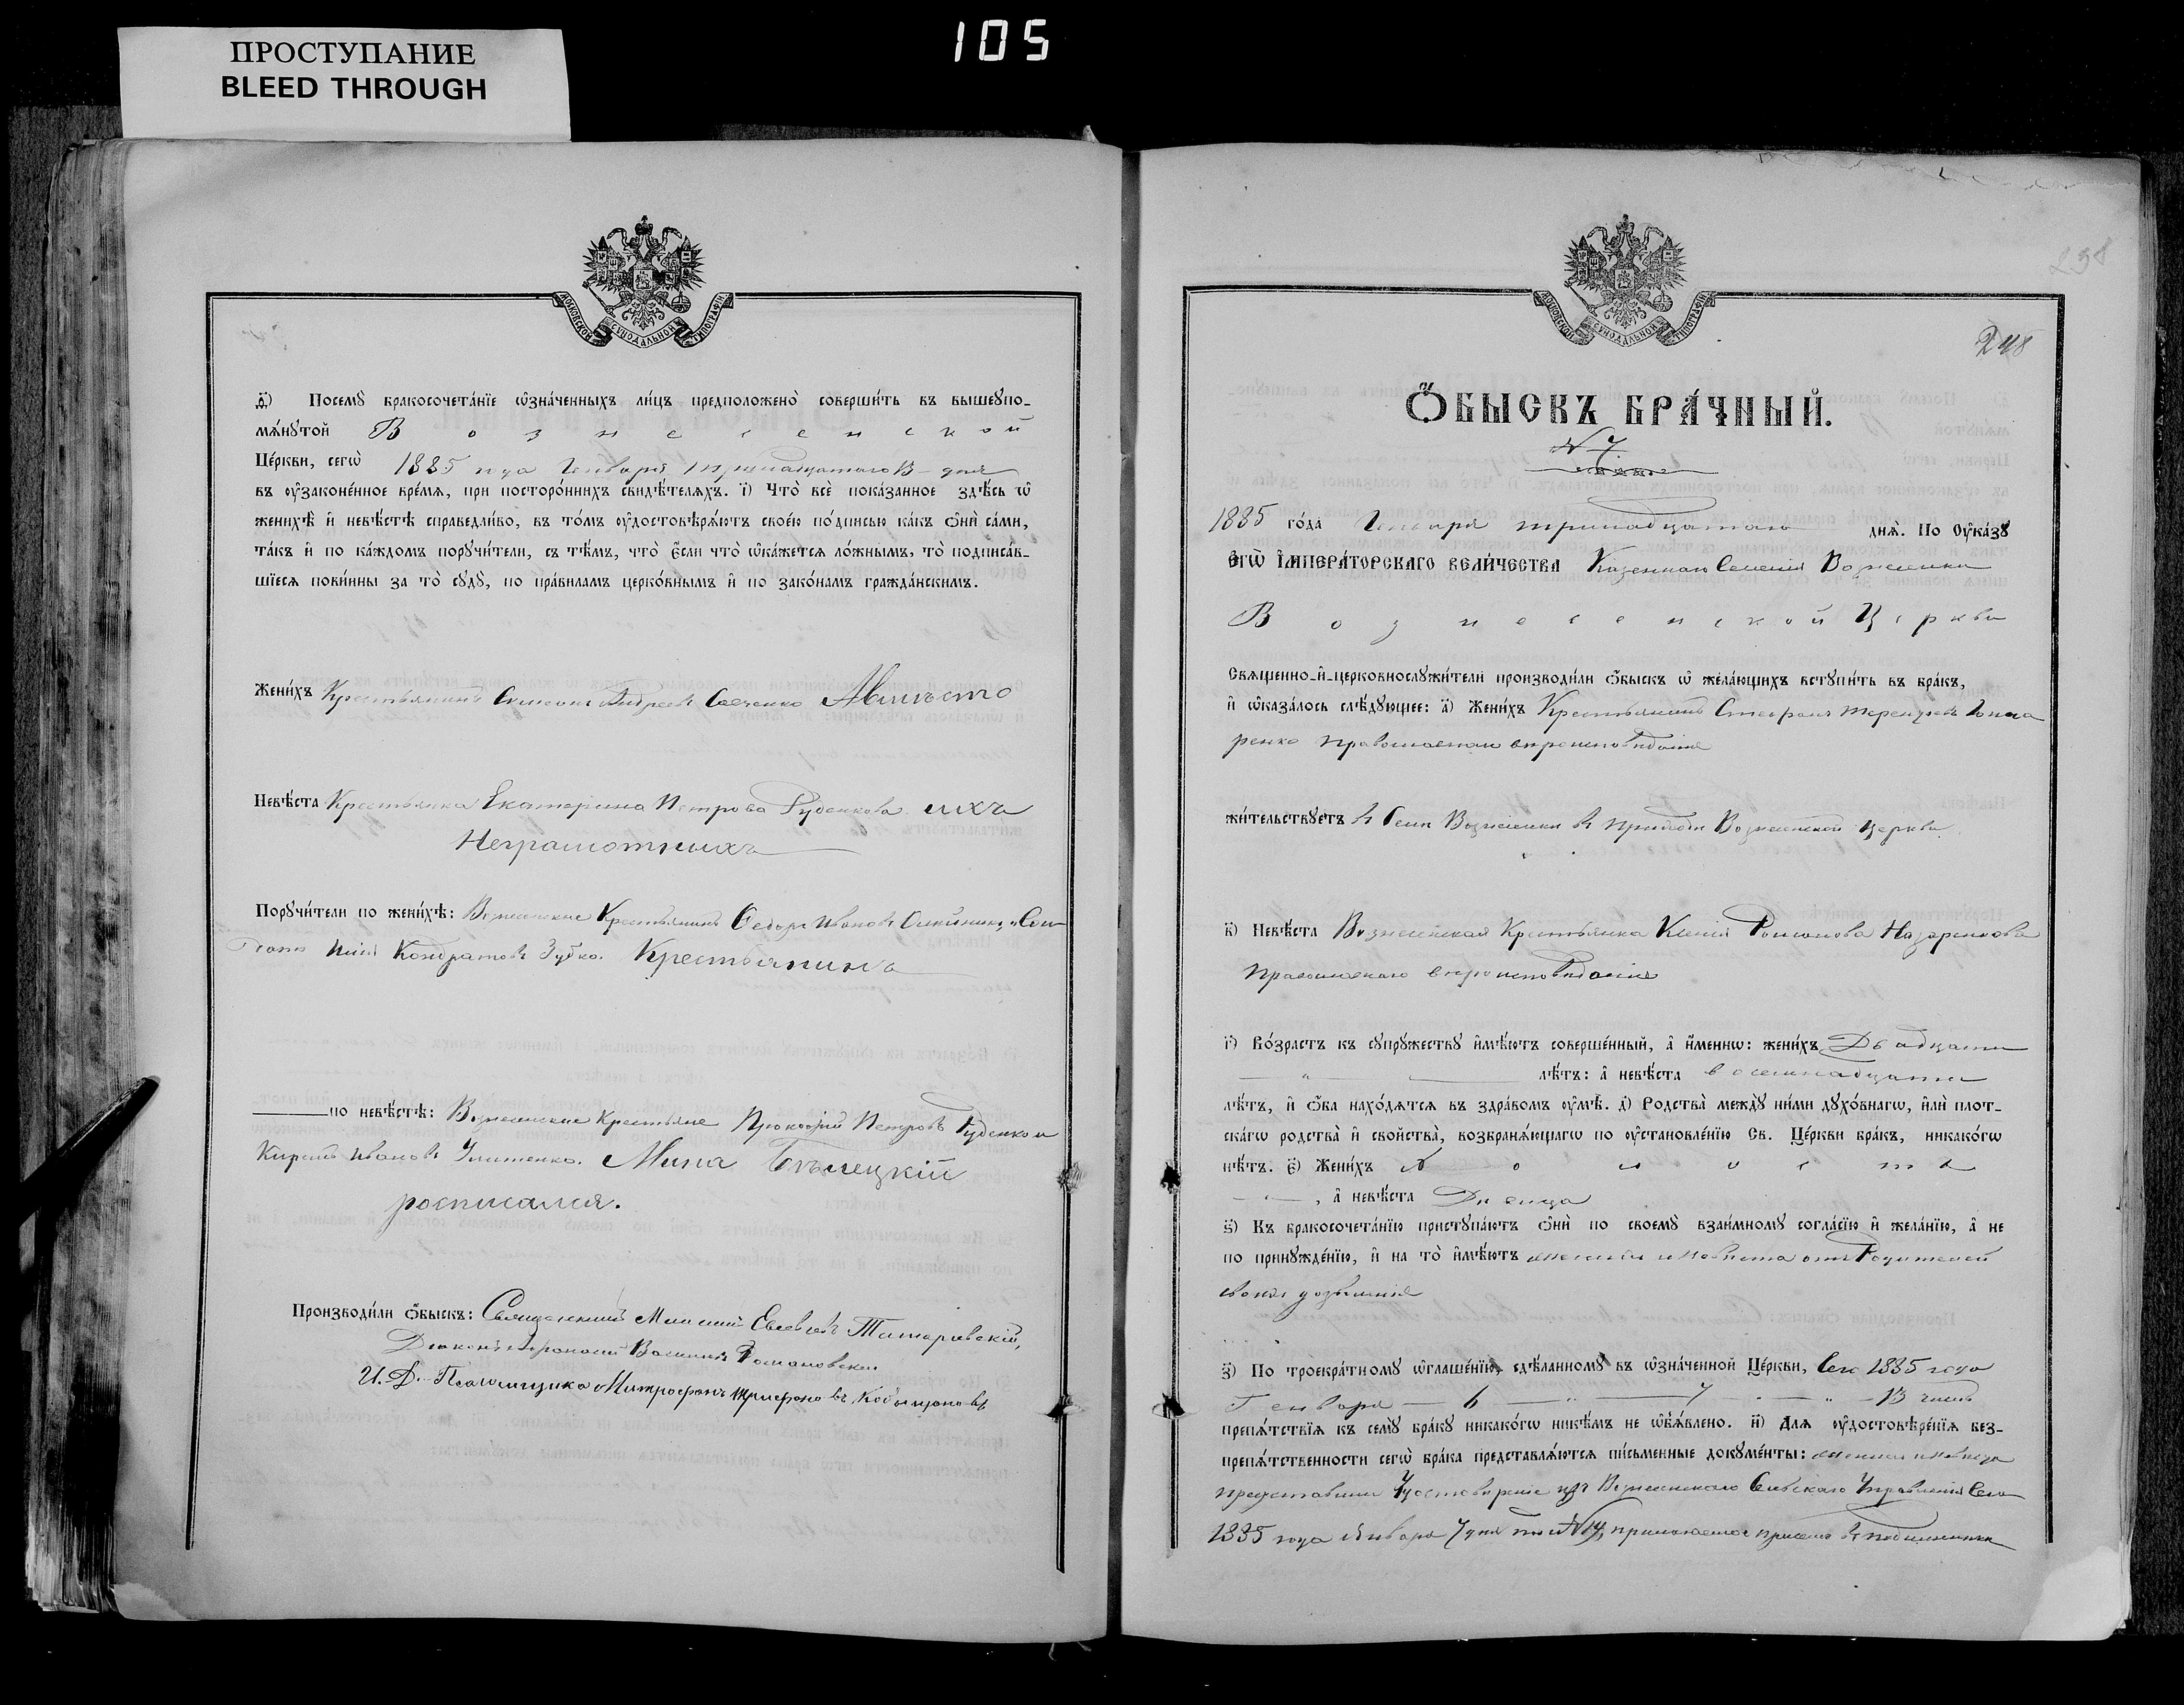 ПРОСТУПАНИЕ
BLEED THROUGH
105
МОСКОВСКОЙ СУНОДАЛЬНОЙ ТИПОГРАФІИ
Посемꙋ̀ бракосочета́нїе ѡ҆зна́ченныхъ ли́цъ предположено̀ соверши́ть въ вышеꙋпо-
мѧ́нꙋтой Вознесенской
Це́ркви, сегѡ̀ 1885 года Генваря тринадцатаго 13 дня
въ ᲂу҆законе́нное вре́мѧ, при посторо́ннихъ свидѣ́телѧхъ. і҃) Что̀ всѐ пока́занное здѣ́сь ѡ҆
женихѣ̀ и҆ невѣ́стѣ справедли́во, въ то́мъ ᲂу҆достовѣрѧ́ютъ свое́ю по́дписью ка́къ ѻ҆нѝ са́ми,
та́къ и҆ по ка́ждомъ порꙋчи́тели, съ тѣ́мъ, что̀ є҆́сли что̀ ѡ҆ка́жетсѧ ло́жнымъ, то̀ подписа́в-
шїесѧ пови́нны за то̀ сꙋдꙋ̀, по пра́виламъ церко́внымъ и҆ по зако́намъ гражда́нскимъ.
Жени́хъ Крестьянинъ Симеонъ Андреевъ Амѣсто
Невѣ́ста Крестьянка Екатерина Петрова Руденкова ихъ
Неграмотныхъ
Порꙋчи́тели по женихѣ̀: Вознесенские Крестьянинъ Федоръ Ивановъ
Кондратовъ Зубко. Крестьянинъ
по невѣ́стѣ: Вознесенские крестьяне Прокофій Петровъ Руденко и
Кирилъ Ивановъ Мина Бѣлецкій
росписался.
Производи́ли ѻ҆́быскъ: Священникъ Евсевіевъ Татаревскій,
Діаконъ Василій Романовскій
И. Д. Псаломщика Митрофанъ Трифоновъ
238
248
Ѻ҆́БЫСКЪ БРА́ЧНЫЙ.
№ 7
1885 го́да Генваря тринадцатаго днѧ̀. По Оу҆ка́зꙋ
Е҆гѡ̀ І҆мпера́торскаго вели́чества Казеннаго Селенія Вознесенки
Вознесенской Церкви
Свѧще́нно-и҆-церковнослꙋжи́тели производи́ли ѻ҆́быскъ ѡ҆ жела́ющихъ встꙋпи́ть въ бра́къ,
и҆ ѡ҆каза́лось слѣ́дꙋющее: а҃) Жени́хъ Крестьянинъ Стефанъ Терентьевъ Гонча
ренко православнаго вероисповѣданія
жи́тельствꙋетъ въ Селѣ Вознесенки въ приходѣ Вознесенской церкви.
в҃) Невѣ́ста Вознесенская Крестьянка Ксенія Романова Назаренкова
православнаго вероисповѣданія
г҃) Во́зрастъ къ сꙋпрꙋ́жествꙋ и҆мѣ́ютъ соверше́нный, а҆ и҆́меннѡ: жени́хъ Двадцати
лѣ́тъ: а҆ невѣ́ста восемнадцати
лѣ́тъ, и҆ ѻ҆́ба нахо́дѧтсѧ въ здра́вомъ ᲂу҆мѣ̀. д҃) Родства̀ междꙋ̀ ни́ми дꙋхо́внагѡ, и҆лѝ плот-
ска́гѡ родства̀ и҆ сво́йства̀, возбранѧ́ющагѡ по ᲂу҆становле́нїю Св. Це́ркви бра́къ, никако́гѡ
нѣ́тъ. є҃) Жени́хъ Холостъ
, а҆ невѣ́ста Дѣвица
ѕ҃) Къ бракосочета́нїю пристꙋпа́ютъ ѻ҆нѝ по своемꙋ̀ взаи́мномꙋ согла́сїю и҆ жела́нїю, а҆ не
по принꙋжде́нїю, и҆ на то̀ и҆мѣ́ютъ женихъ и невѣста отъ Родителей
своихъ дозволеніе
з҃) По троекра́тномꙋ ѡ҆глаше́нїю, сдѣ́ланномꙋ въ ѡ҆зна́ченной Це́ркви, Сего 1885 года
Генваря — 6 — " — 7 — " — 13 числъ
препѧ́тствїѧ къ семꙋ̀ бра́кꙋ никако́гѡ никѣ́мъ не ѡ҆б̾ѧ́влено. и҃) Длѧ̀ ᲂу҆достовѣре́нїѧ без-
препѧ́тственности сегѡ̀ бра́ка представлѧ́ютсѧ пи́сьменные докꙋме́нты: женихъ и невѣста
представили Удостовѣреніе изъ Вознесенскаго Сельскаго Управленія Сего
1885 года Января 7 дня № 14, прилагаемое присемъ въ подлинникѣ